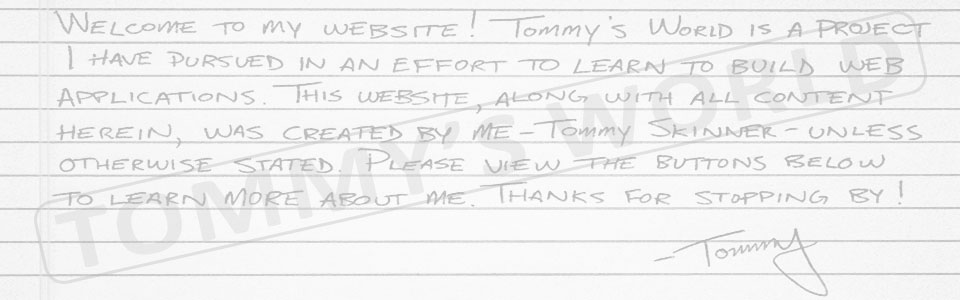 WELCOME TO MY WEBSITE! TOMMY'S WORLD IS A PROJECT
I HAVE PURSUED IN AN EFFORT TO LEARN TO BUILD WEB
APPLICATIONS. THIS WEBSITE, ALONG WITH ALL CONTENT
HEREIN, WAS CREATED BY ME – TOMMY SKINNER – UNLESS
OTHERWISE STATED. PLEASE VIEW THE BUTTONS BELOW
TO LEARN MORE ABOUT ME. THANKS FOR STOPPING BY!
– Tommy
TOMMY'S WORLD